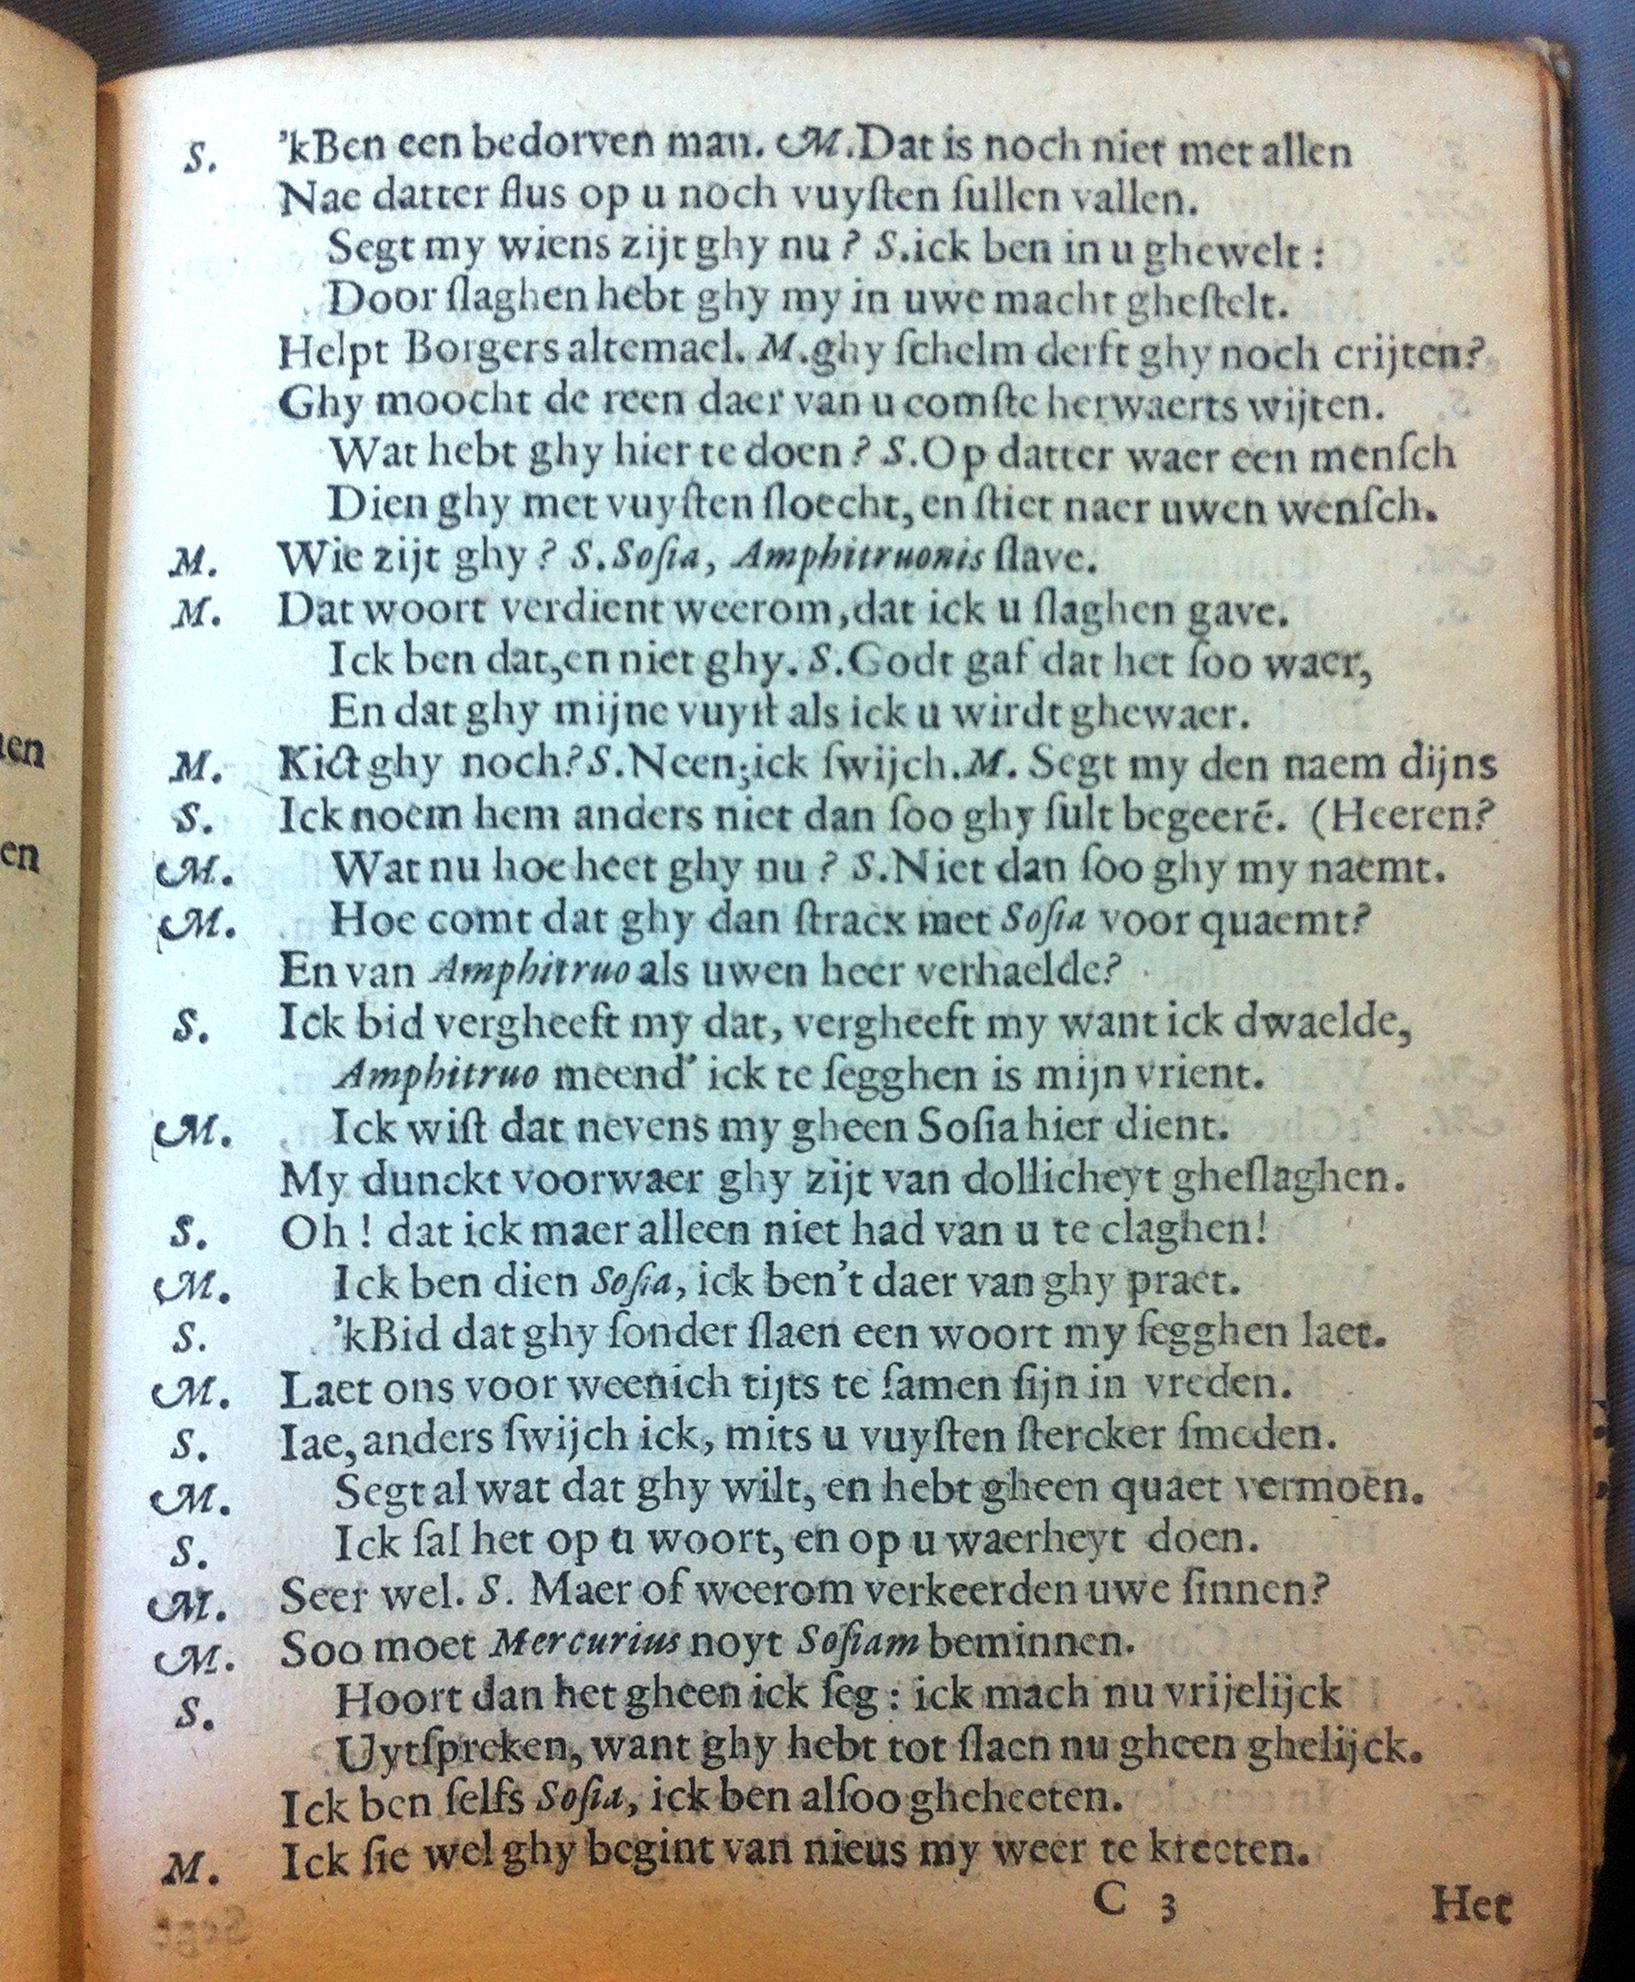 S. 'kBen een bedorven man. M.Dat is noch niet met allen
Nae datter flus op u noch vuyſten ſullen vallen.
Segt my wiens zijt ghy nu? S.ick ben in u ghewelt:
Door ſlaghen hebt ghy my in uwe macht gheſtelt.
Helpt Borgers altemael. M.ghy ſchelm derft ghy noch crijten?
Ghy moocht de reen daer van u comſte herwaerts wijten.
Wat hebt ghy hier te doen? S.Op datter waer een menſch
Dien ghy met vuyſten ſloecht, en ſtiet naer uwen wenſch.
M. Wie zijt ghy? S.Soſia, Amphitruonis ſlave.
M. Dat woort verdient weerom, dat ick u ſlaghen gave.
Ick ben dat, en niet ghy. S.Godt gaf dat het ſoo waer,
En dat ghy mijne vuyſt als ick u wirdt ghewaer.
M. Kict ghy noch? S.Neen; ick ſwijch. M. Segt my den naem dijns
S. Ick noem hem anders niet dan ſoo ghy ſult begeerē. (Heeren?
M. Wat nu hoe heet ghy nu? S.Niet dan ſoo ghy my naemt.
M. Hoe comt dat ghy dan ſtracx met Soſia voor quaemt?
En van Amphitruo als uwen heer verhaelde?
S. Ick bid vergheeft my dat, vergheeft my want ick dwaelde,
Amphitruo meend' ick te ſegghen is mijn vrient.
M. Ick wiſt dat nevens my gheen Soſia hier dient.
My dunckt voorwaer ghy zijt van dollicheyt gheſlaghen.
S. Oh! dat ick maer alleen niet had van u te claghen!
M. Ick ben dien Soſia, ick ben't daer van ghy praet.
S. 'kBid dat ghy ſonder ſlaen een woort my ſegghen laet.
M. Laet ons voor weenich tijts te ſamen ſijn in vreden.
S. Iae, anders ſwijch ick, mits u vuyſten ſtercker ſmeden.
M. Segt al wat dat ghy wilt, en hebt gheen quaet vermoen.
S. Ick ſal het op u woort, en op u waerheyt doen.
M. Seer wel. S. Maer of weerom verkeerden uwe ſinnen?
M. Soo moet Mercurius noyt Soſiam beminnen.
S. Hoort dan het gheen ick ſeg: ick mach nu vrijelijck
Uytſpreken, want ghy hebt tot ſlaen nu gheen ghelijck.
Ick ben ſelfs Soſia, ick ben alſoo gheheeten.
M. Ick ſie wel ghy begint van nieus my weer te kreeten.
C 3 Het